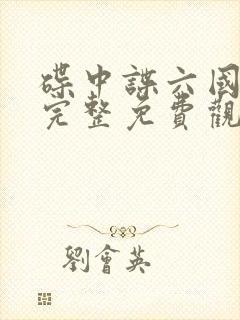 碟中諜六國
完整免費觀
劉會英